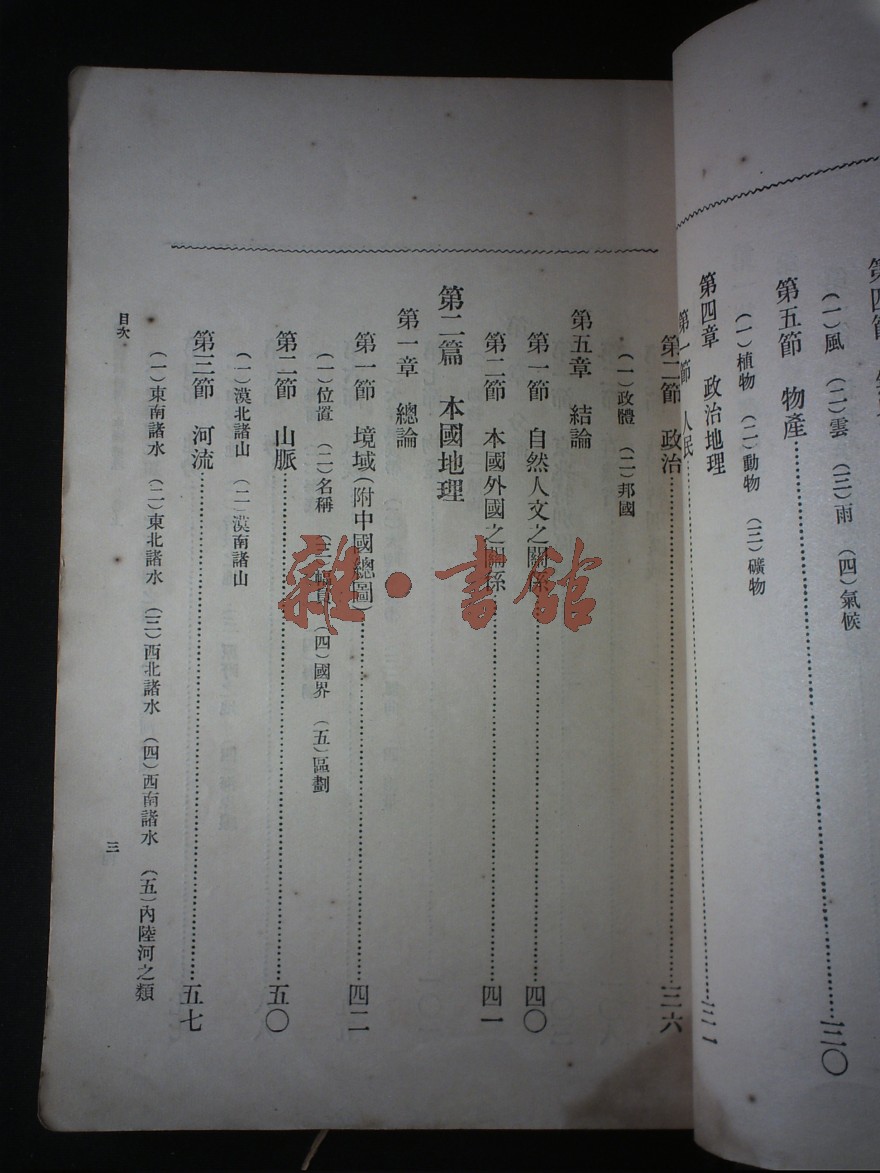 第四節
(一)風 (二)雲 (三)雨 (四)氣候
第五節 物產……三〇
(一)植物 (二)動物 (三)礦物
第四章 政治地理
第一節 人民……三二
第二節 政治……三六
(一)政體 (二)邦國
第五章 結論
第一節 自然人文之關係……四〇
第二節 本國外國之關係……四一
第二篇 本國地理
第一章 總論
第一節 境域(附中國總圖)……四二
(一)位置 (二)名稱 (三)幅員 (四)國界 (五)區劃
第二節 山脈……五〇
(一)漠北諸山 (二)漠南諸山
第三節 河流……五七
(一)東南諸水 (二)東北諸水 (三)西北諸水 (四)西南諸水 (五)內陸河之類
目次
三
雜·書館